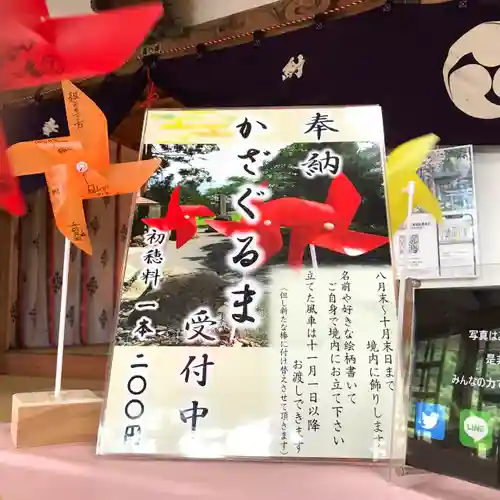 奉納
かざぐるま
受付中
初穂料 一本 二〇〇円
八月末～十月末日まで
境内に飾ります
名前や好きな絵柄書いて
ご自身で境内にお立て下さい
立てた風車は十一月一日以降
お渡しできます
（但し新たな棒に付け替えさせて頂きます）
写真は
みんなの力で
LINE